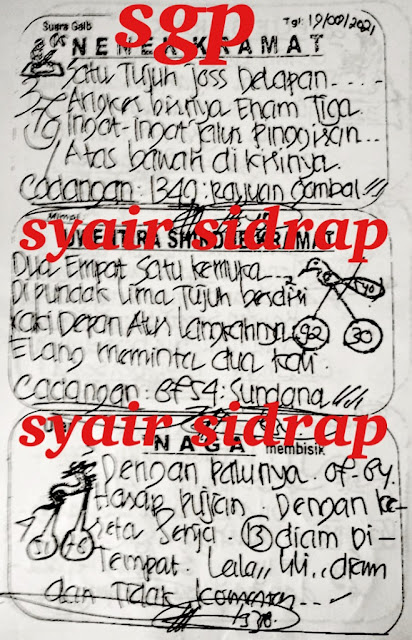 Suara Gaib
sgp
Tgl: 19/09/2021
NENEK KRAMAT
Satu Tujuh joss Delapan
Angker bisnya Enam Tiga
Ingat-Ingat jalur Pinggiran...
Atas bawah di kirinya.
Cadangan: 1349: Rayuan Gombal///
Mimpi
syair sidrap
KRAMAT
Dua Empat Satu kemuka
Di pundak Lima Tujuh berdiri
kaki Depan Atur Langkahnya
92 30
Elang meminta dua kali.
Cadangan: Sundana///
syair sidrap
NAGA membisik
Dengan palunya.
Hasap Pujian Dengan ke-
reta Senja. 13 diam Di-
Tempat. Lala,, Uli,, diam
dan Tidak